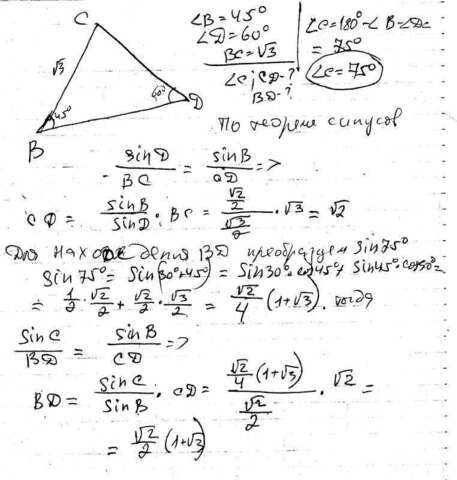 C
√3
60°
D
45°
B
∠B = 45°
∠D = 60°
BC = √3
∠C; CD - ?
BD - ?
∠C = 180° - ∠B - ∠D =
= 75°
∠C = 75°
По теореме синусов
sinD / BC = sinB / CD =>
CD = sinB / sinD · BC = (√2/2) / (√3/2) · √3 = √2
Для нахождения BD преобразуем sin75°
sin75° = sin(30°+45°) = sin30°·cos45° + sin45°·cos30° =
= 1/2 · √2/2 + √2/2 · √3/2 = √2/4 (1+√3). тогда
sinC / BD = sinB / CD =>
BD = sinC / sinB · CD = (√2/4 (1+√3)) / (√2/2) · √2 =
= √2/2 (1+√3)